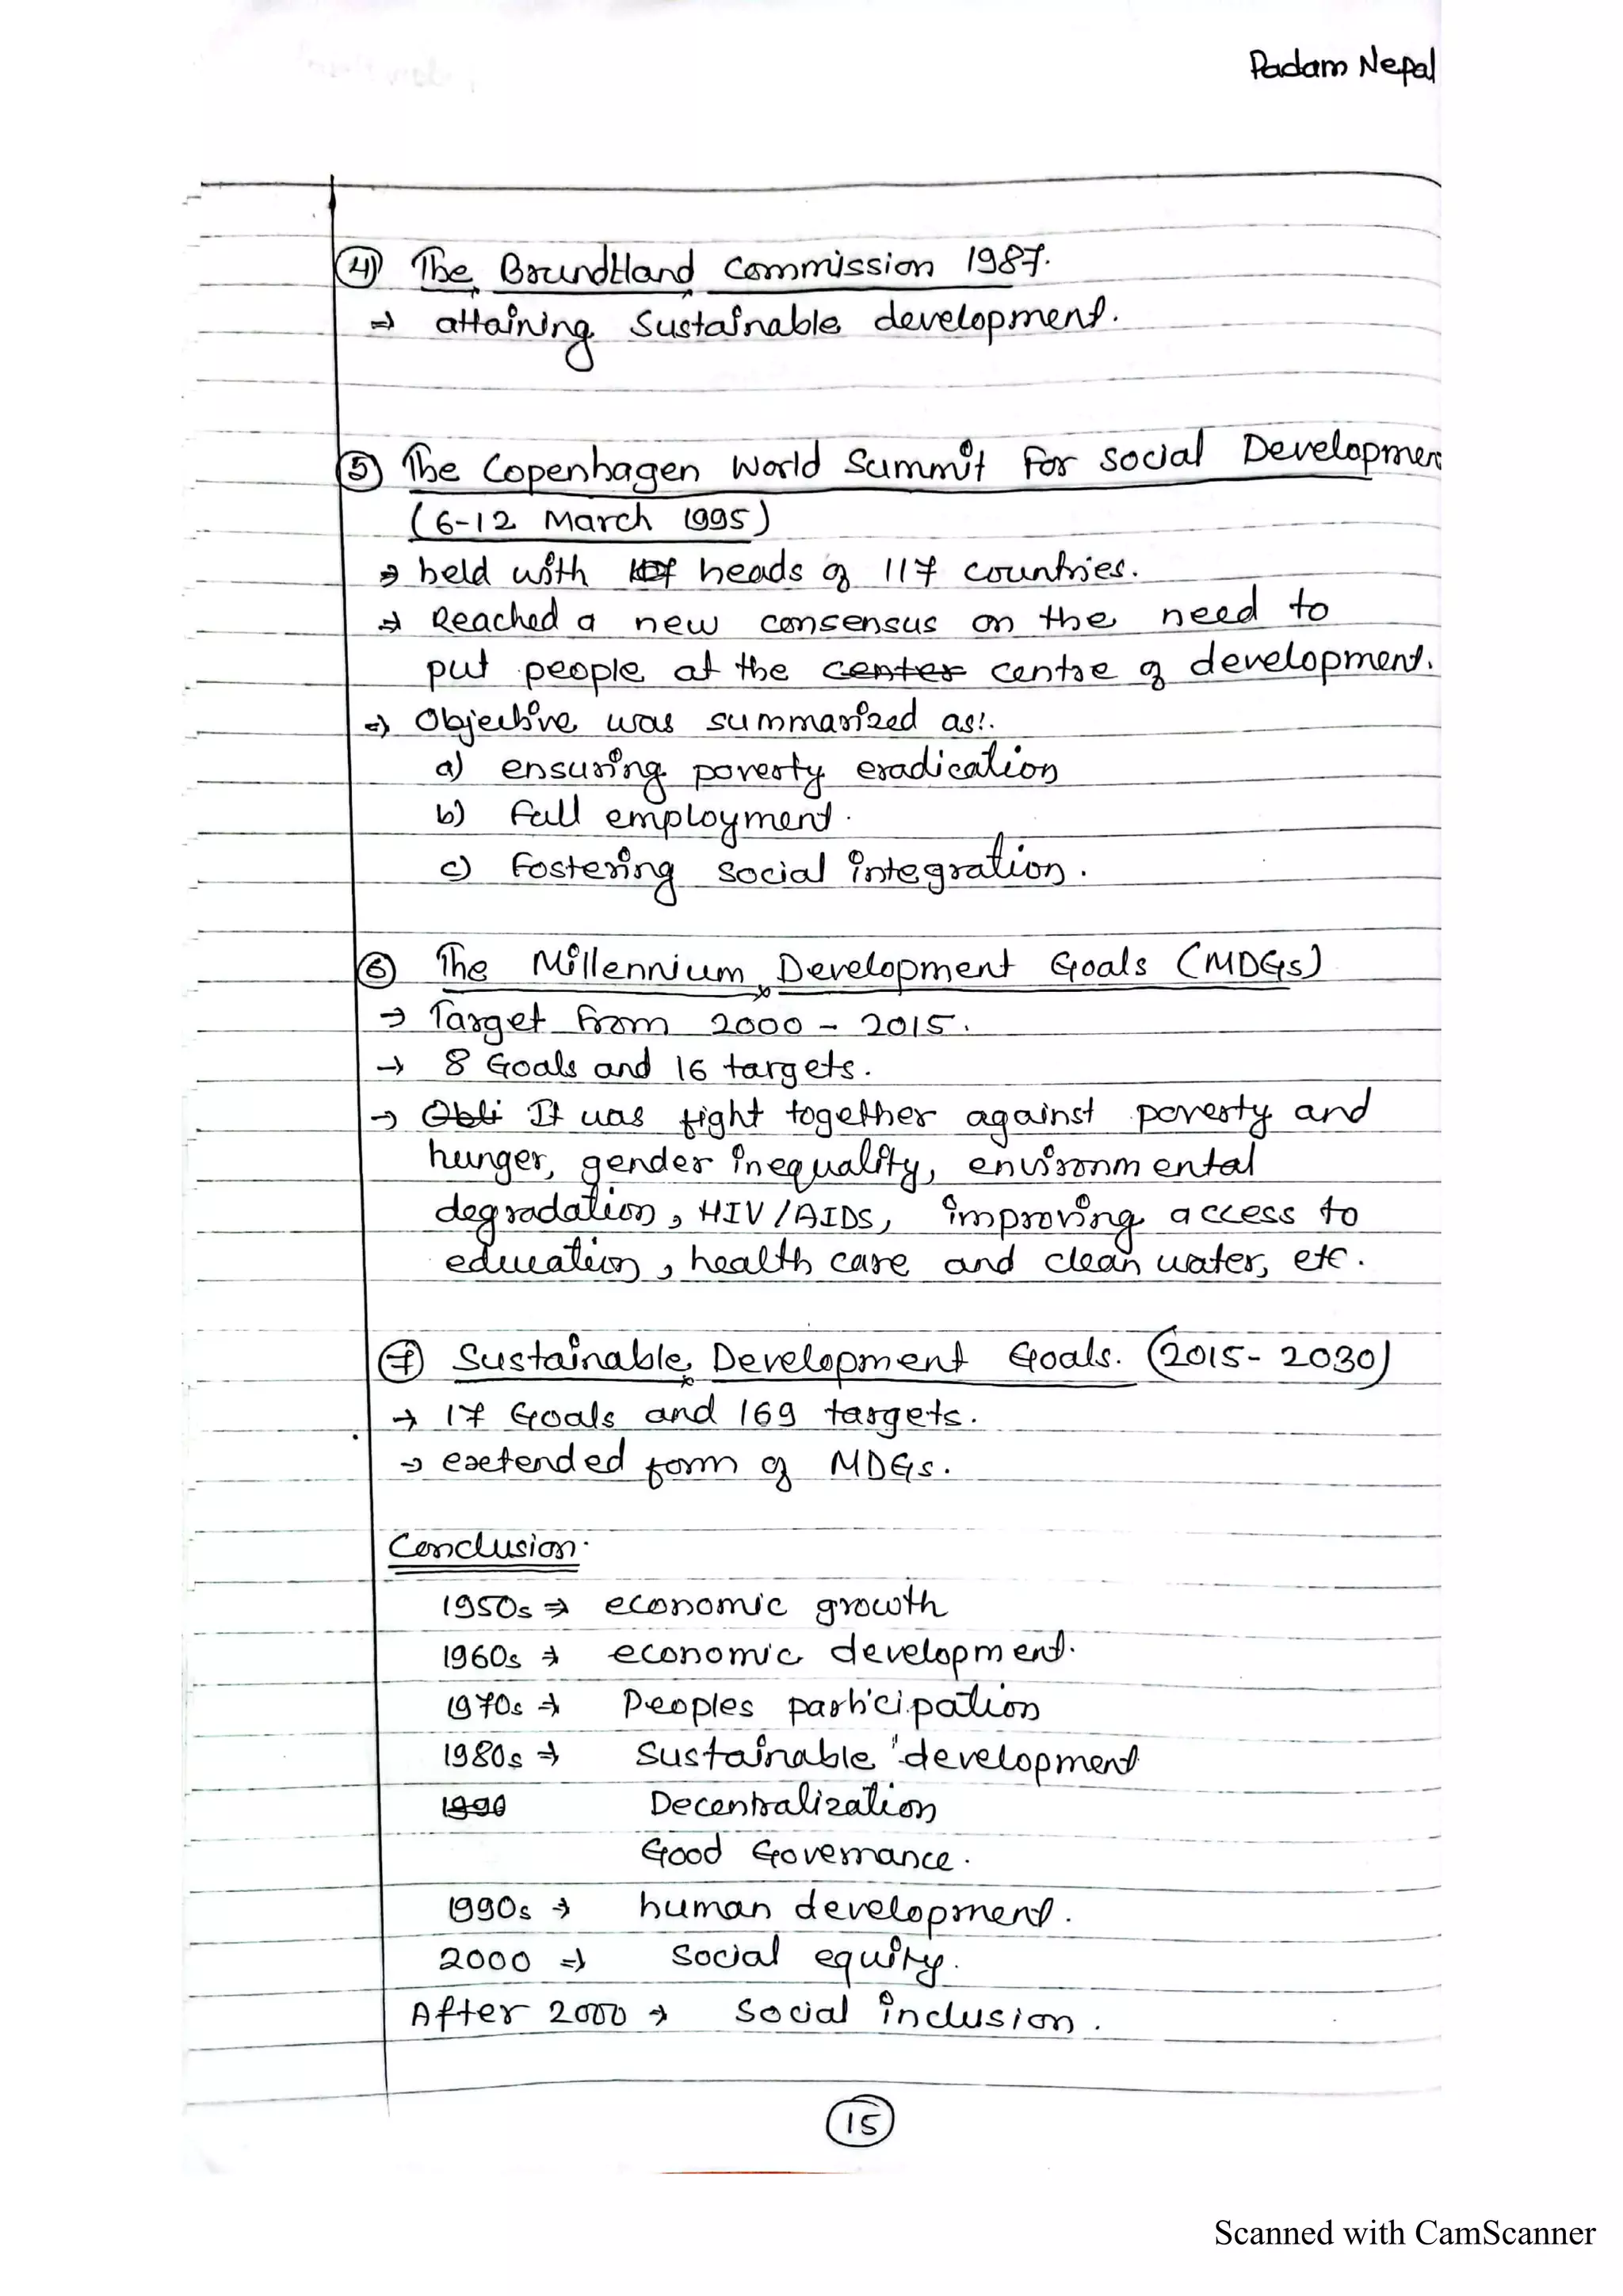 Padam Nepal
④ The Brundtland Commission 1987.
⇒ attaining sustainable development.
⑤ The Copenhagen World Summit For social Developmen
(6-12 March 1995)
⇒ held with 107 heads of 117 countries.
⇒ Reached a new consensus on the need to
put people at the center centre of development.
⇒ Objective was summarized as:.
a) ensuring poverty eradication
b) Full employment.
c) Fostering social integration.
⑥ The Millennium Development Goals (MDGs)
→ Target from 2000 - 2015.
→ 8 Goals and 16 targets.
→ Obli It was fight together against poverty and
hunger, gender inequality, environmental
degradation, HIV/AIDS, improving access to
education, health care and clean water, etc.
⑦ Sustainable Development Goals. (2015-2030)
→ 17 Goals and 169 targets.
→ extended form of MDGs.
Conclusion.
1950s ⇒ economic growth
1960s ⇒ economic development.
1970s ⇒ Peoples participation
1980s ⇒ sustainable development
1990 Decentralization
Good Governance.
1990s ⇒ human development.
2000 ⇒ social equity.
After 2000 ⇒ social inclusion.
15
Scanned with CamScanner